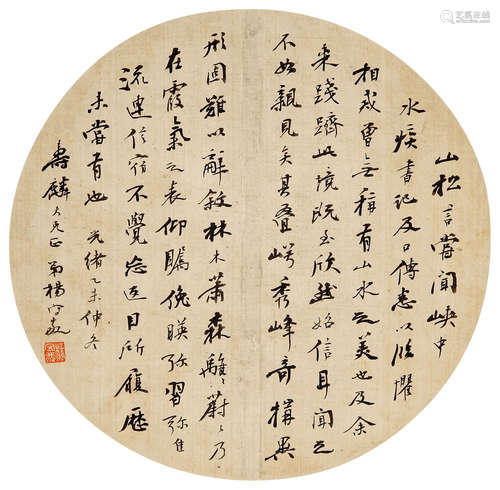 山松言嘗聞峽中
水疾書記及口傳悉以臨懼
相戒曾無稱有山水之美也及余
來踐躋此境既至欣然始信耳聞之
不如親見矣其疊崿秀峰奇搆異
形固難以辭敘林木蕭森離離蔚蔚乃
在霞氣之表仰矚俛暎彌習彌佳
流連信宿不覺忘返目所履歷
未嘗有也 光緒乙未仲冬
壽麟大兄正 弟楊守敬